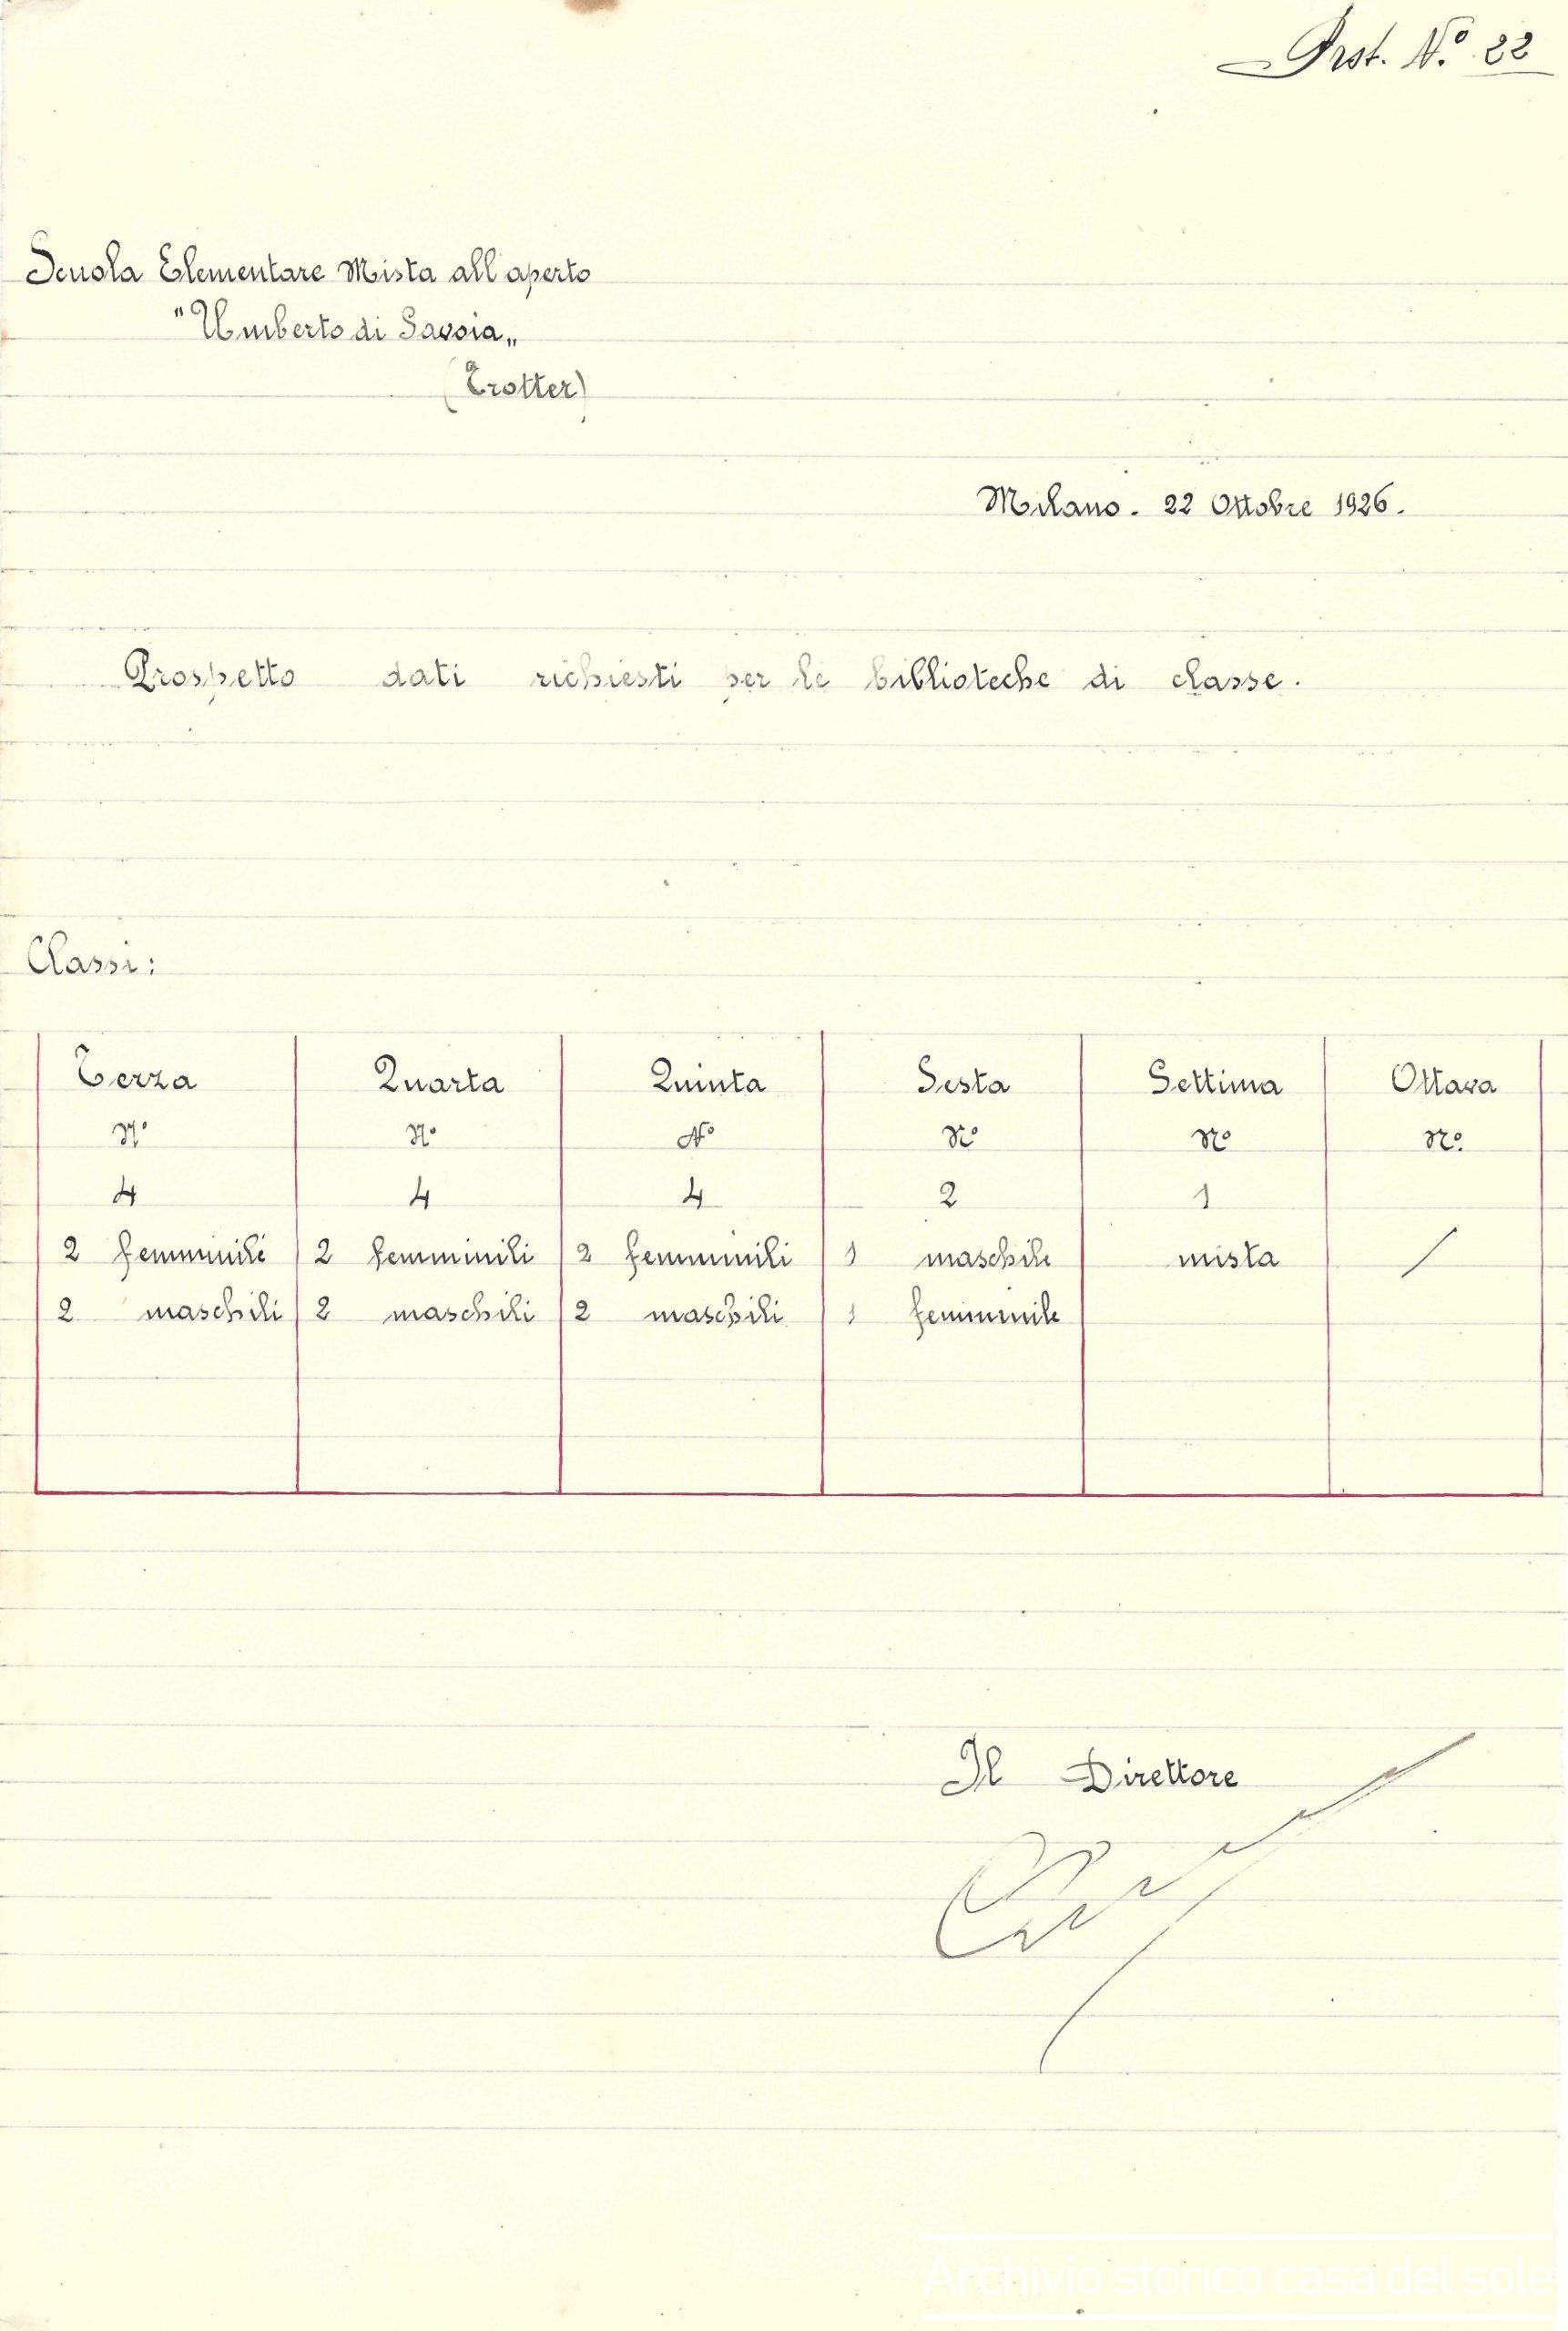 Prot. N.° 22
Scuola Elementare Mista all'aperto
"Umberto di Savoia„
(Trotter)
Milano. 22 Ottobre 1926.
Prospetto dati richiesti per le biblioteche di classe.
Classi:
Terza Quarta Quinta Sesta Settima Ottava
N° N° N° N° N° N°.
4 4 4 2 1
2 femminili 2 femminili 2 femminili 1 maschile mista /
2 maschili 2 maschili 2 maschili 1 femminile
Il Direttore
Archivio storico casa del sole